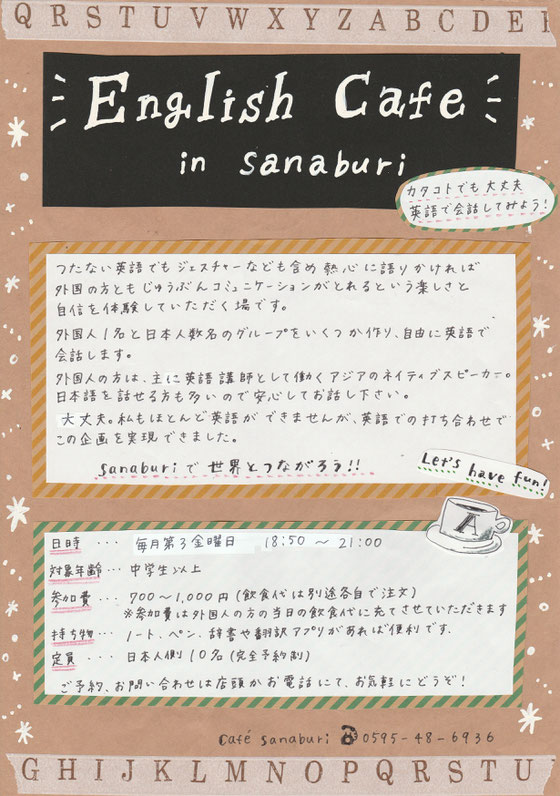 QRSTUVWXYZABCDE
English Cafe
in sanaburi
カタコトでも大丈夫
英語で会話してみよう!
つたない英語でもジェスチャーなども含め熱心に語りかければ
外国の方ともじゅうぶんコミュニケーションがとれるという楽しさと
自信を体験していただく場です。
外国人1名と日本人数名のグループをいくつか作り、自由に英語で
会話します。
外国人の方は、主に英語講師として働くアジアのネイティブスピーカー。
日本語を話せる方も多いので安心してお話し下さい。
大丈夫。私もほとんど英語ができませんが、英語での打ち合わせで
この企画を実現できました。
sanaburiで世界とつながろう!!
Let's have fun!
A
日時 ・・・ 毎月第3金曜日 18:50 〜 21:00
対象年齢・・・ 中学生以上
参加費 ・・・ 700〜1,000円(飲食代は別途各自で注文)
※参加費は外国人の方の当日の飲食代に充てさせていただきます
持ち物・・・ ノート、ペン、辞書や翻訳アプリがあれば便利です。
定員 ・・・ 日本人側10名(完全予約制)
ご予約、お問い合わせは店頭かお電話にて、お気軽にどうぞ!
Café sanaburi ☎0595-48-6936
GHIJKLMNOPQRSTU